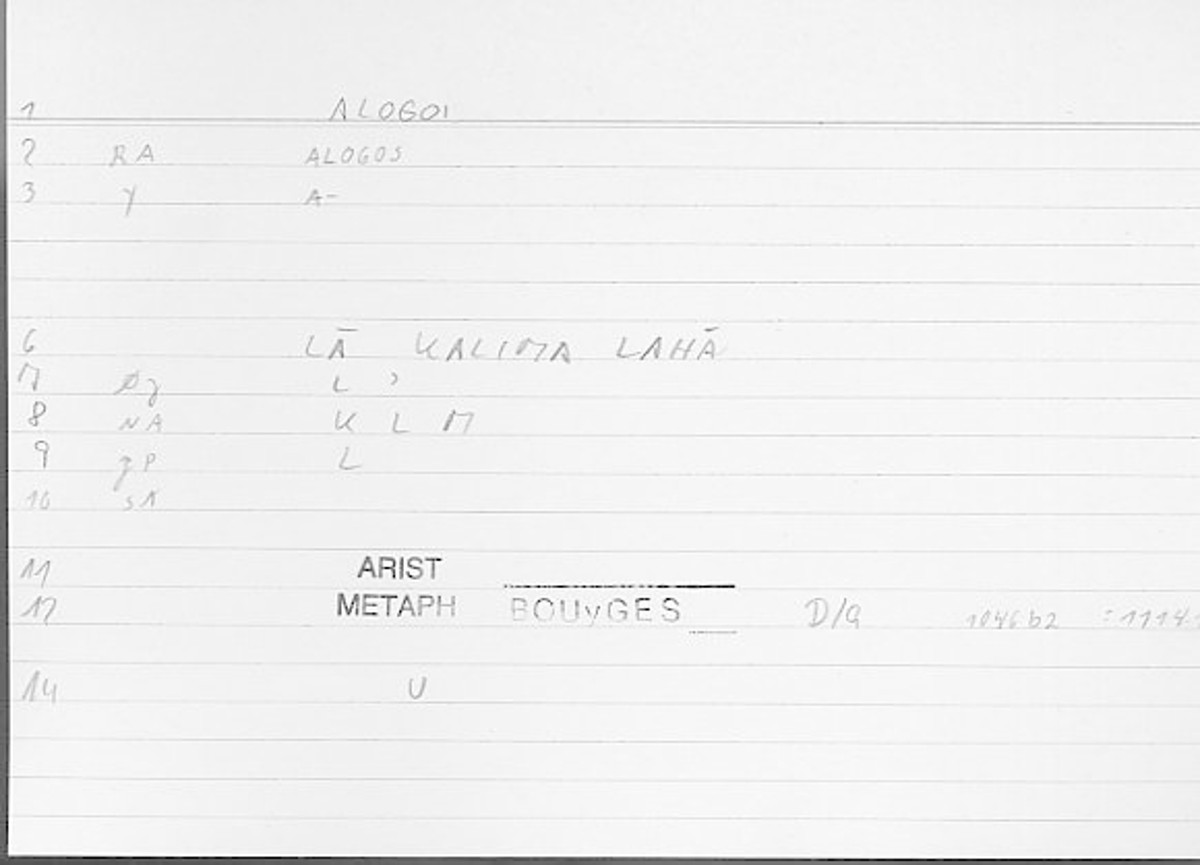 1 ALOGOI
2 RA ALOGOS
3 γ A-
6 LĀ KALIMA LAHĀ
7 L ʾ
8 NA K L M
9 gP L
10 sK
11 ARIST
12 METAPH BOUyGES D/a 1046b2 :1114.
14 U